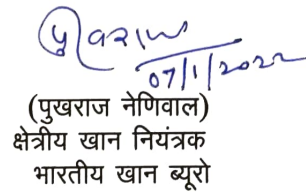 पुखराज
07/1/2022
(पुखराज नेणिवाल)
क्षेत्रीय खान नियंत्रक
भारतीय खान ब्यूरो